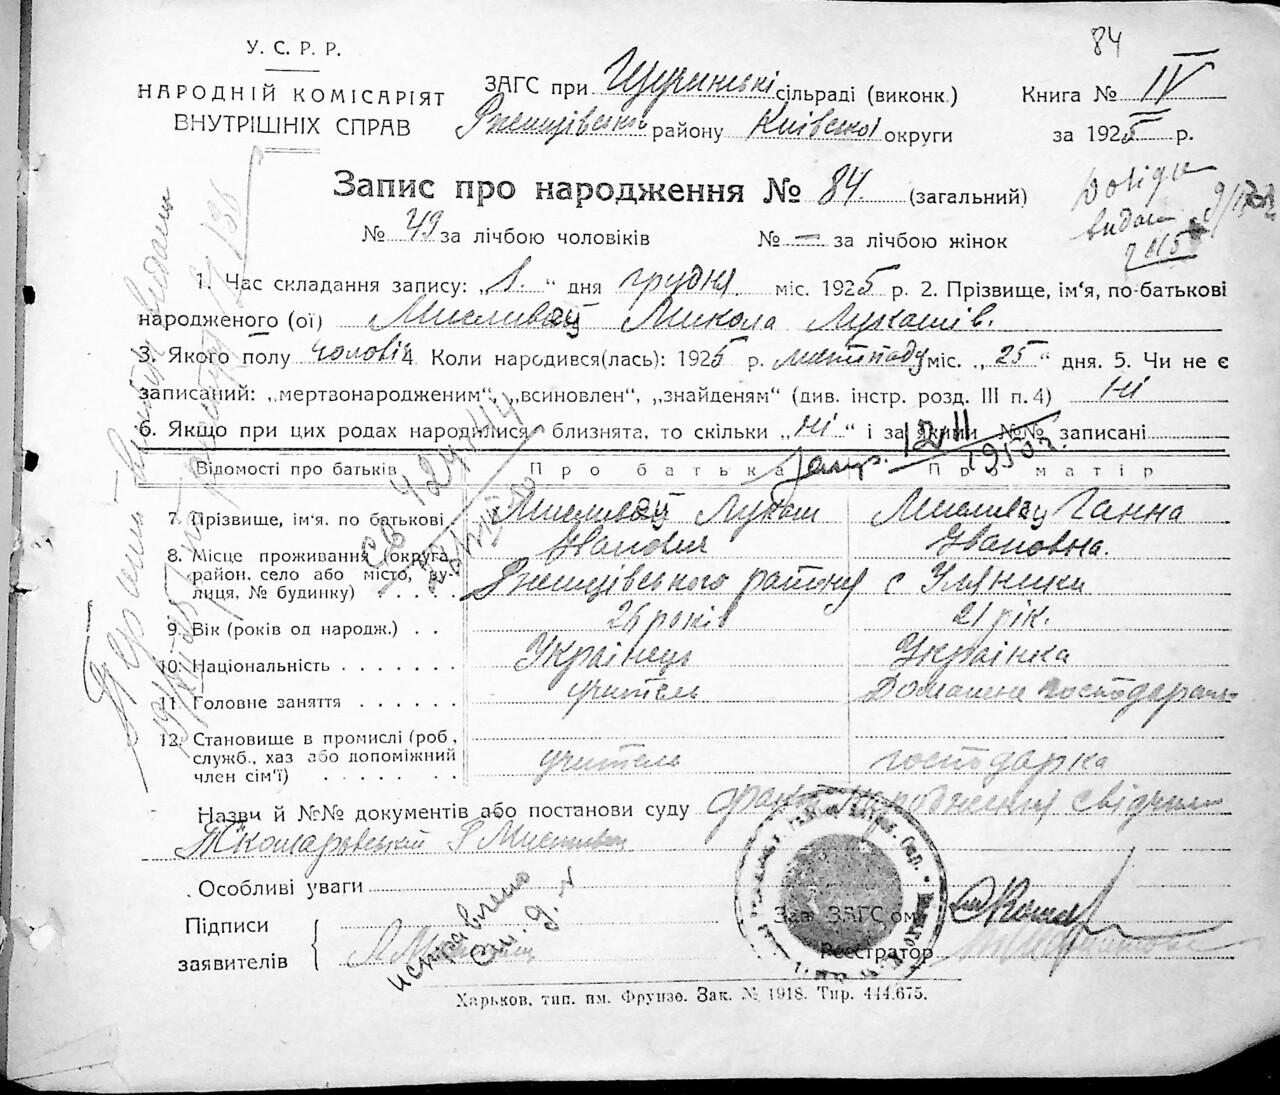 84
У. С. Р. Р.
НАРОДНІЙ КОМІСАРІЯТ
ВНУТРІШНІХ СПРАВ
ЗАГС при Щучинські сільраді (виконк.)
Ржищівськ району Київської округи
Книга № IV
за 1925 р.
Запис про народження № 84. (загальний)
№ 49 за лічбою чоловіків № — за лічбою жінок
1. Час складання запису: „1.“ дня грудня міс. 1925 р. 2. Прізвище, ім‘я, по-батькові
народженого (ої) Мисливец Микола Лукашів.
3. Якого полу чоловіч 4. Коли народився(лась): 1925 р. листопаду міс. „25“ дня. 5. Чи не є
записаний: „мертвонародженим“, „всиновлен“, „знайденям“ (див. інстр. розд. III п. 4) Ні
6. Якщо при цих родах народилися близнята, то скільки „ні“ і за якими №№ записані
12 II
1950 р.
Відомості про батьків Про батька Про матір
7. Прізвище, ім‘я, по батькові Мисливец Лукаш Іванович Мисливец Ганна Івановна.
8. Місце проживання (округа,
район, село або місто, ву-
лиця, № будинку) Ржищівського району с Уляники
9. Вік (років од народж.) 26 років 21 рік.
10. Національність Українець Українка
11. Головне заняття учитель Домашне господарст
12. Становище в промислі (роб.,
служб., хаз або допоміжний
член сім‘ї) учитель господарка
Назви й №№ документів або постанови суду факт народження свідчили
Комаровський Мисливец
Особливі уваги
Підписи
заявителів
исправлено
Зав. ЗАГС‘ом
Реєстратор
Харьков, тип. им. Фрунзе. Зак. № 1918. Тир. 444.675.